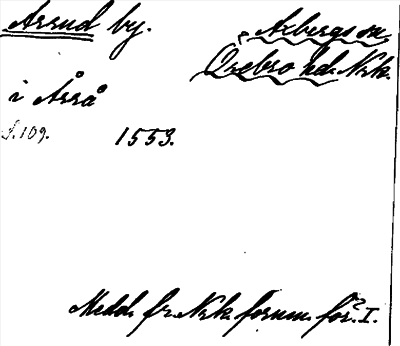 Assud by. Axbergs sn.
Örebro hd. Nrk.
i Åsså
S. 109. 1553.
Medd. fr. Nrk. fornm. för. I.